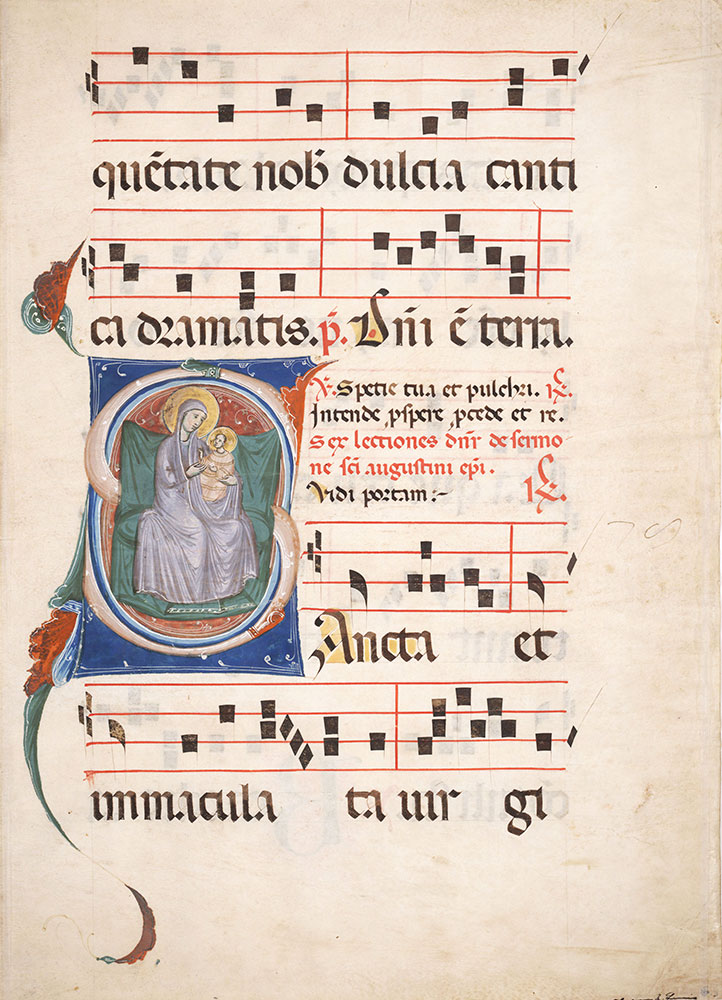 quētate nob̄ dulcia canti
ca dramatis. p̄. Dn̄i ē terra.
℣. Spetie tua et pulchri. ℟.
Intende ꝓspere ꝓcede et re.
Sex lectiones dn̄r de sermo
ne sc̄i augustini ep̄i.
Vidi portam:~ ℟.
SAncta et
immacula ta uir gi